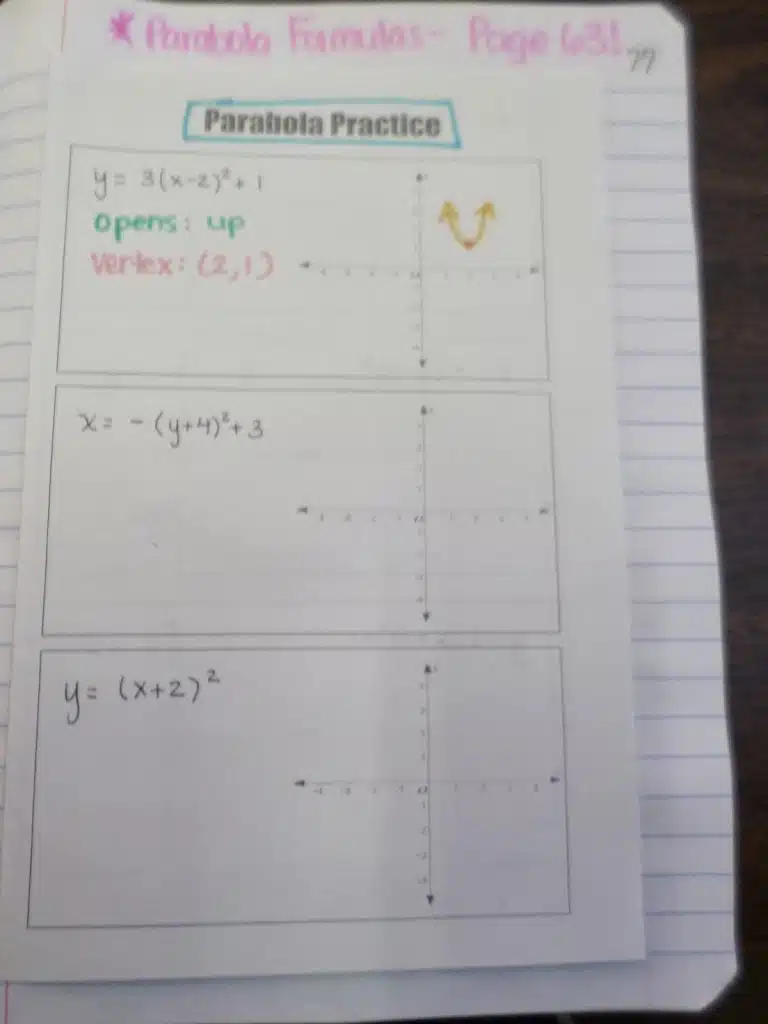 * Parabola Formulas - Page 63!
77
Parabola Practice
y = 3(x-2)² + 1
Opens: up
Vertex: (2,1)
x = -(y+4)² + 3
y = (x+2)²